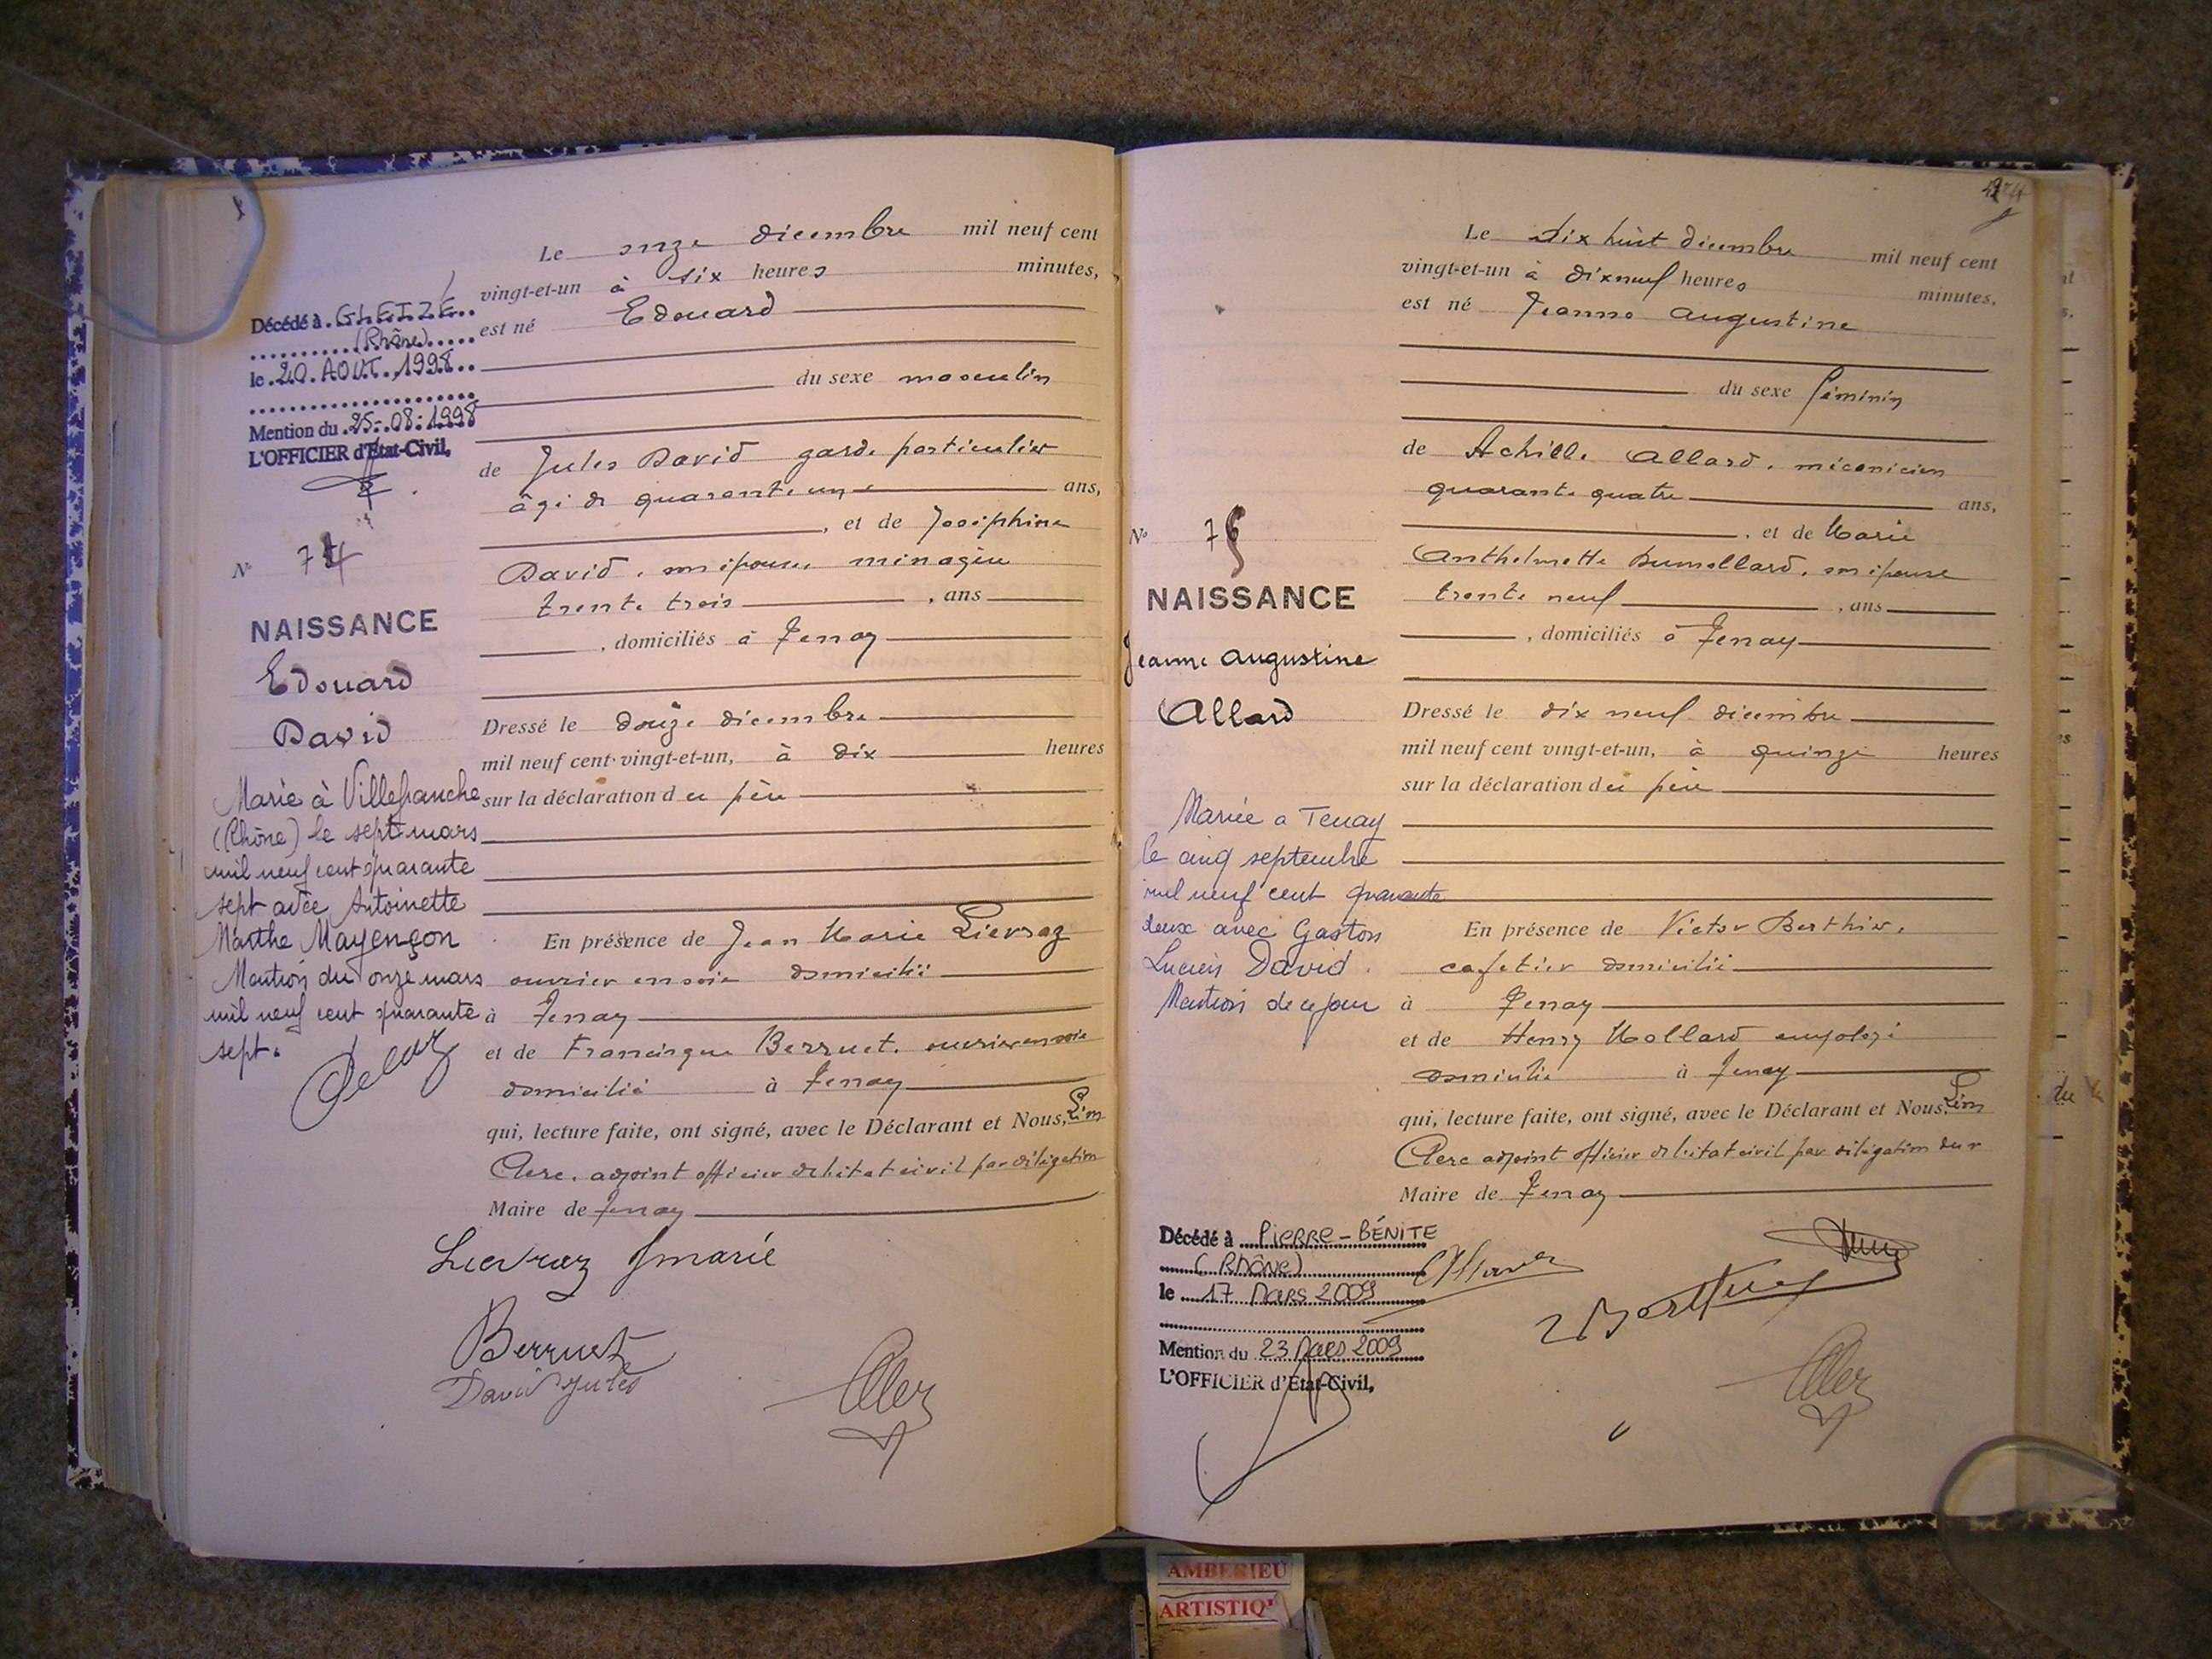 Le onze décembre mil neuf cent
vingt-et-un à six heures minutes,
est né Edouard
du sexe masculin
de Jules David garde particulier
âgé de quarante un ans,
, et de Joséphine
David, son épouse, ménagère
trente trois , ans
, domiciliés à Tenay
Dressé le douze décembre
mil neuf cent vingt-et-un, à dix heures
sur la déclaration du père
En présence de Jean Marie Lievraz
ouvrier en soie domicilié
à Tenay
et de Francisque Berruet, ouvrier en soie
domicilié à Tenay
qui, lecture faite, ont signé, avec le Déclarant et Nous, Léon
Clerc, adjoint officier de l'état civil par délégation
Maire de Tenay
Lievraz Jmarie
Berruet
David Jules
Décédé à GLEIZÉ
(Rhône)
le 20 AOUT 1998
Mention du 25-08-1998
L'OFFICIER d'Etat-Civil,
N° 74
NAISSANCE
Edouard
David
Marié à Villefranche
(Rhône) le sept mars
mil neuf cent quarante
sept avec Antoinette
Marthe Mayençon
Mention du onze mars
mil neuf cent quarante
sept.
Le dix huit décembre mil neuf cent
vingt-et-un à dix neuf heures minutes,
est né Jeanne Augustine
du sexe féminin
de Achille Allard, mécanicien
quarante quatre ans,
, et de Marie
Anthelmette Dumollard, son épouse
trente neuf , ans
, domiciliés à Tenay
Dressé le dix neuf décembre
mil neuf cent vingt-et-un, à quinze heures
sur la déclaration du père
En présence de Victor Berthier,
cafetier domicilié
à Tenay
et de Henry Mollard employé
domicilié à Tenay
qui, lecture faite, ont signé, avec le Déclarant et Nous, Léon
Clerc adjoint officier de l'état civil par délégation du
Maire de Tenay
N°
NAISSANCE
Jeanne Augustine
Allard
Mariée a Tenay
le cinq septembre
mil neuf cent quarante
deux avec Gaston
Lucien David.
Mention de ce jour
Décédé à PIERRE-BÉNITE
(RHÔNE)
le 17 MARS 2009
Mention du 23 MARS 2009
L'OFFICIER d'Etat-Civil,
du
AMBERIEU
ARTISTIQ